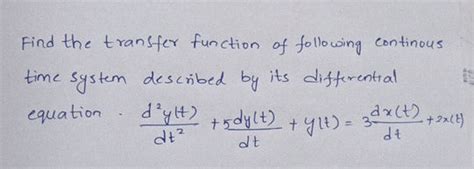 Find the transfer function of following continous
time system described by its differential
equation . d²y(t)/dt² + 5dy(t)/dt + y(t) = 3dx(t)/dt + 2x(t)